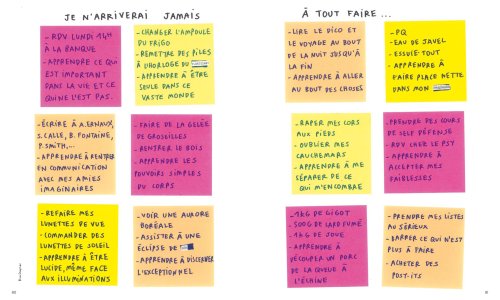 JE N'ARRIVERAI JAMAIS
À TOUT FAIRE...
- RDV LUNDI 14H
À LA BANQUE
- APPRENDRE CE QUI
EST IMPORTANT
DANS LA VIE ET CE
QUI NE L'EST PAS.
- CHANGER L'AMPOULE
DU FRIGO
- REMETTRE DES PILES
À L'HORLOGE DU
- APPRENDRE À ÊTRE
SEULE DANS CE
VASTE MONDE
- ÉCRIRE À A. ERNAUX,
S. CALLE, B. FONTAINE,
P. SMITH,...
- APPRENDRE À RENTRER
EN COMMUNICATION
AVEC MES AMIES
IMAGINAIRES
- FAIRE DE LA GELÉE
DE GROSEILLES
- RENTRER LE BOIS
- APPRENDRE LES
POUVOIRS SIMPLES
DU CORPS
- REFAIRE MES
LUNETTES DE VUE
- COMMANDER DES
LUNETTES DE SOLEIL
- APPRENDRE À ÊTRE
LUCIDE, MÊME FACE
AUX ILLUMINATIONS
- VOIR UNE AURORE
BORÉALE
- ASSISTER À UNE
ÉCLIPSE DE
- APPRENDRE À DISCERNER
L'EXCEPTIONNEL
- LIRE LE DICO ET
LE VOYAGE AU BOUT
DE LA NUIT JUSQU'À
LA FIN
- APPRENDRE À ALLER
AU BOUT DES CHOSES
- PQ
- EAU DE JAVEL
- ESSUIE TOUT
- APPRENDRE À
FAIRE PLACE NETTE
DANS MON
- RAPER MES CORS
AUX PIEDS
- OUBLIER MES
CAUCHEMARS
- APPRENDRE À ME
SÉPARER DE CE
QUI M'ENCOMBRE
- PRENDRE DES COURS
DE SELF DÉFENSE
- RDV CHEZ LE PSY
- APPRENDRE À
ACCEPTER MES
FAIBLESSES
- 1KG DE GIGOT
- 500G DE LARD FUMÉ
- 1KG DE JOUE
- APPRENDRE À
DÉCOUPER UN PORC
DE LA QUEUE À
L'ÉCHINE
- PRENDRE MES LISTES
AU SÉRIEUX
- BARRER CE QUI N'EST
PLUS À FAIRE
- ACHETER DES
POST-ITS